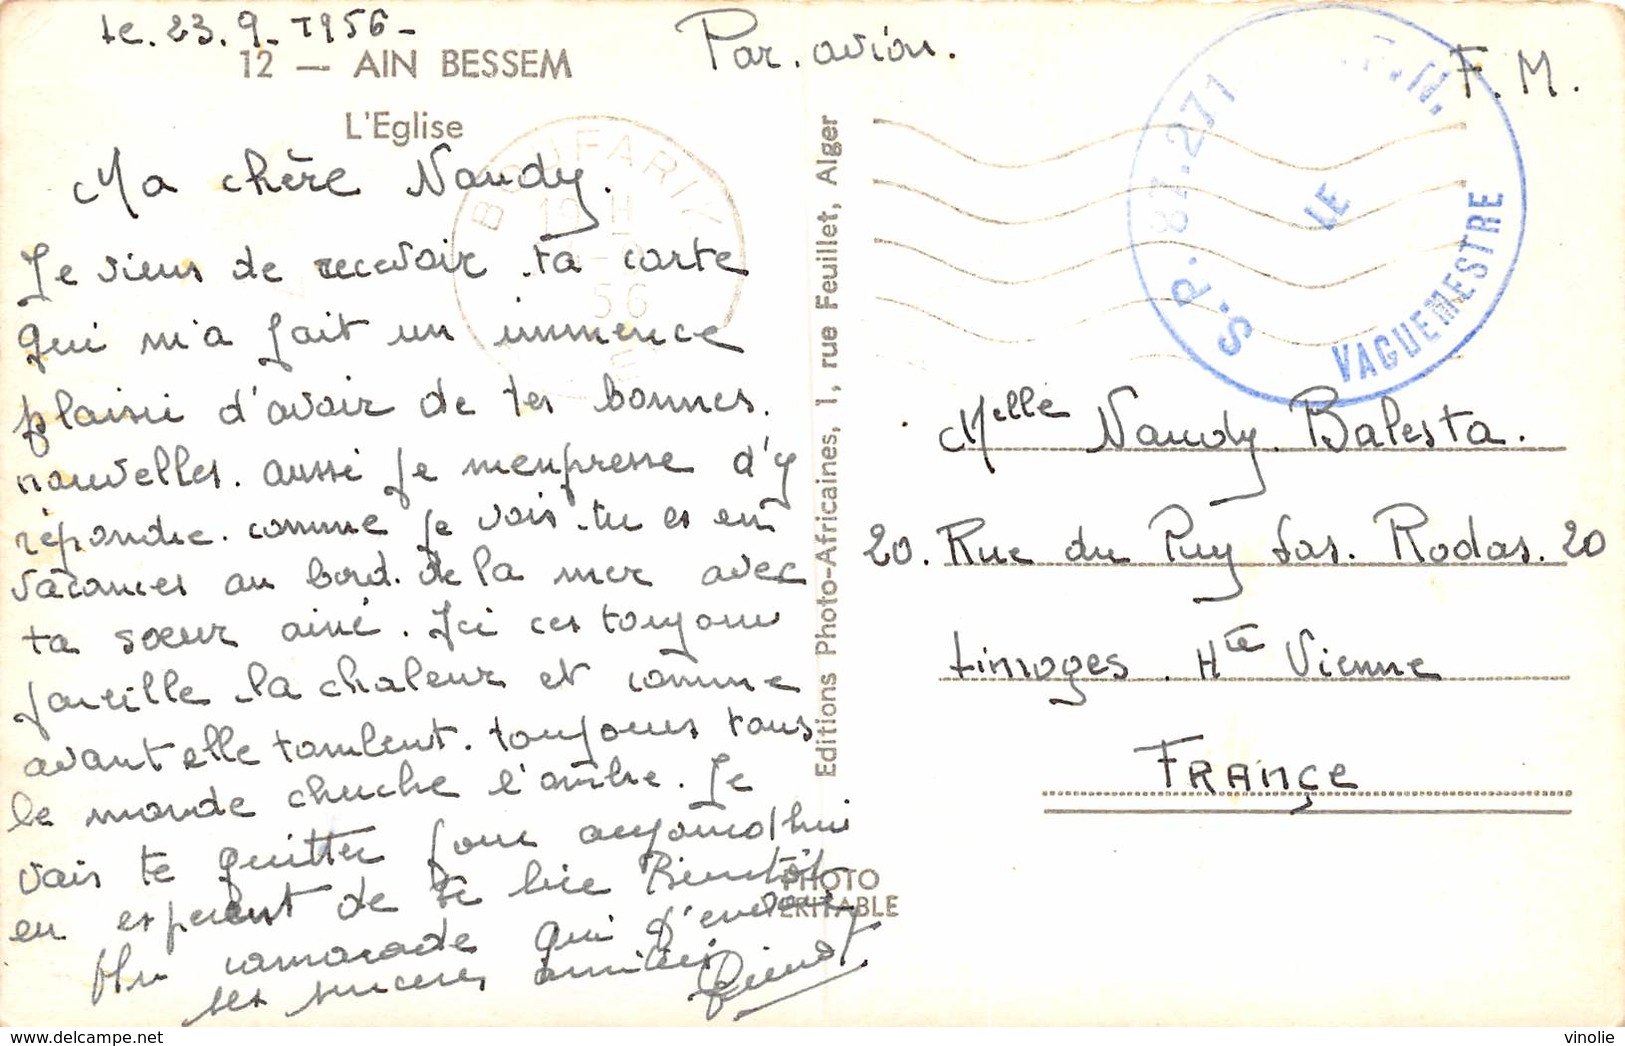 le. 23.9.1956-
12 — AIN BESSEM
L'Eglise
Ma chère Naudy.
Je viens de recevoir ta carte
qui m'a fait un immence
plaisir d'avoir de tes bonnes.
nouvelles. aussi je m'empresse d'y
répondre. comme je vois. tu es en
vacances au bord. de la mer avec
ta sœur ainé. Ici ces toujour
pareille la chaleur et comme
avant elle tombent. toujours tous
le monde cherche l'ombre. Je
vais te quitter pour aujourd'hui
en esperent de te lire Bientôt
Un camarade qui t'envoie
ses sinceres amitiés
PHOTO
VERITABLE
Editions Photo-Africaines, 1, rue Feuillet, Alger
BOUFARIK
19 H
56
Par. avion.
F.M.
S.P. 87.271
LE
VAGUEMESTRE
Melle Naudy. Balesta.
20. Rue du Puy Las. Rodas. 20
Limoges. Hte Vienne
FRANçe
vinolie